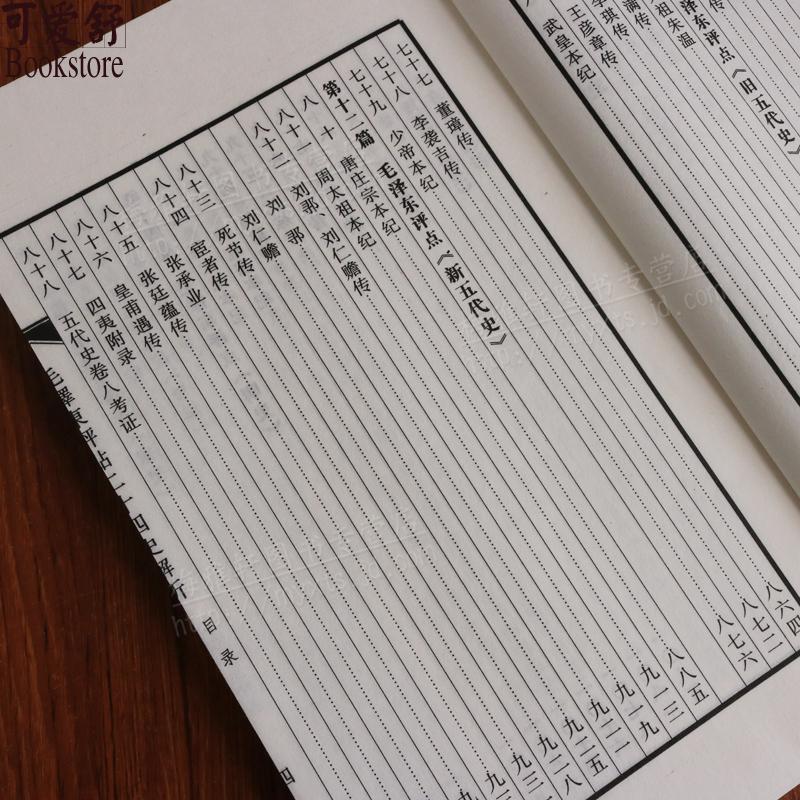 可爱舒
Bookstore
毛泽东评点《旧五代史》
祖朱温
满传
李琪传
王彦章传
武皇本纪
七十七 董璋传 八六四
七十八 李袭吉传 八七二
七十九 少帝本纪 八七六
第十二篇 毛泽东评点《新五代史》
八十 唐庄宗本纪 八八五
八十一 周太祖本纪 九一三
八十二 刘鄩、刘仁赡传 九一九
刘鄩 九二一
刘仁赡 九二五
八十三 死节传
八十四 宦者传
张承业
八十五 张廷蕴传
八十六 皇甫遇传
八十七 四夷附录
八十八 五代史卷八考证
毛澤東評點二十四史解析 目录 四